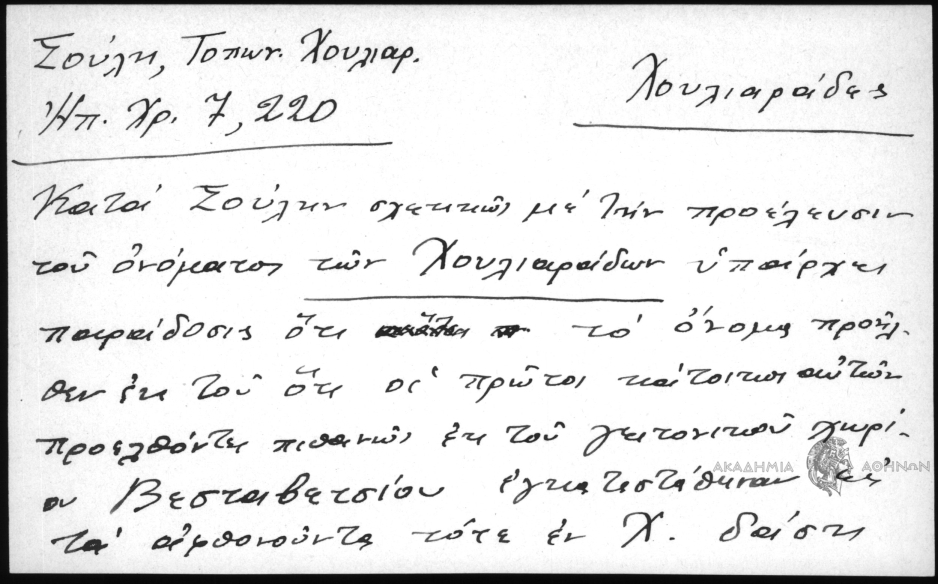 Σούλη, Τοπων. Χουλιαρ.
Ἠπ. Χρ. 7, 220
Χουλιαράδες
Κατά Σούλην σχετικῶς μέ τήν προέλευσιν
τοῦ ὀνόματος τῶν Χουλιαράδων ὑπάρχει
παράδοσις ὅτι τό ὄνομα προῆλ-
θεν ἐκ τοῦ ὅτι οἱ πρῶτοι κάτοικοι αὐτῶν
προελθόντες πιθανῶς ἐκ τοῦ γειτονικοῦ χωρί-
ου Βεσταβετσίου ἐγκατεστάθησαν εἰς
τά ἀφθονοῦντα τότε ἐν Χ. δάση
ΑΚΑΔΗΜΙΑ ΑΘΗΝΩΝ